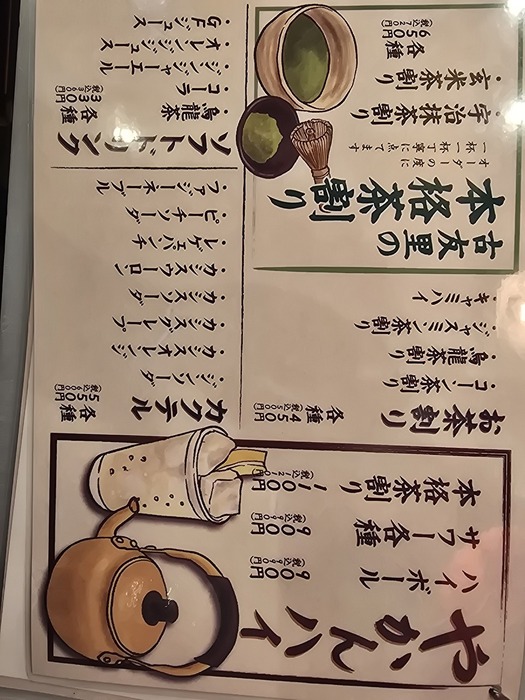 やかんハイ
ハイボール
900円
(税込990円)
サワー各種
900円
(税込990円)
本格茶割り
1100円
(税込1210円)
お茶割り
各種
450円
(税込500円)
・コーン茶割り
・烏龍茶割り
・ジャスミン茶割り
・キャミハイ
カクテル
各種
550円
(税込600円)
・ジンソーダ
・カシスオレンジ
・カシスグレープ
・カシスソーダ
・カシスウーロン
・レゲェパンチ
・ピーチソーダ
・ファジーネーブル
古友里の
本格茶割り
オーダーの度に
一杯一杯丁寧に点てます
・宇治抹茶割り
・玄米茶割り
各種
650円
(税込720円)
ソフトドリンク
各種
330円
(税込360円)
・烏龍茶
・コーラ
・ジンジャーエール
・オレンジジュース
・GFジュース